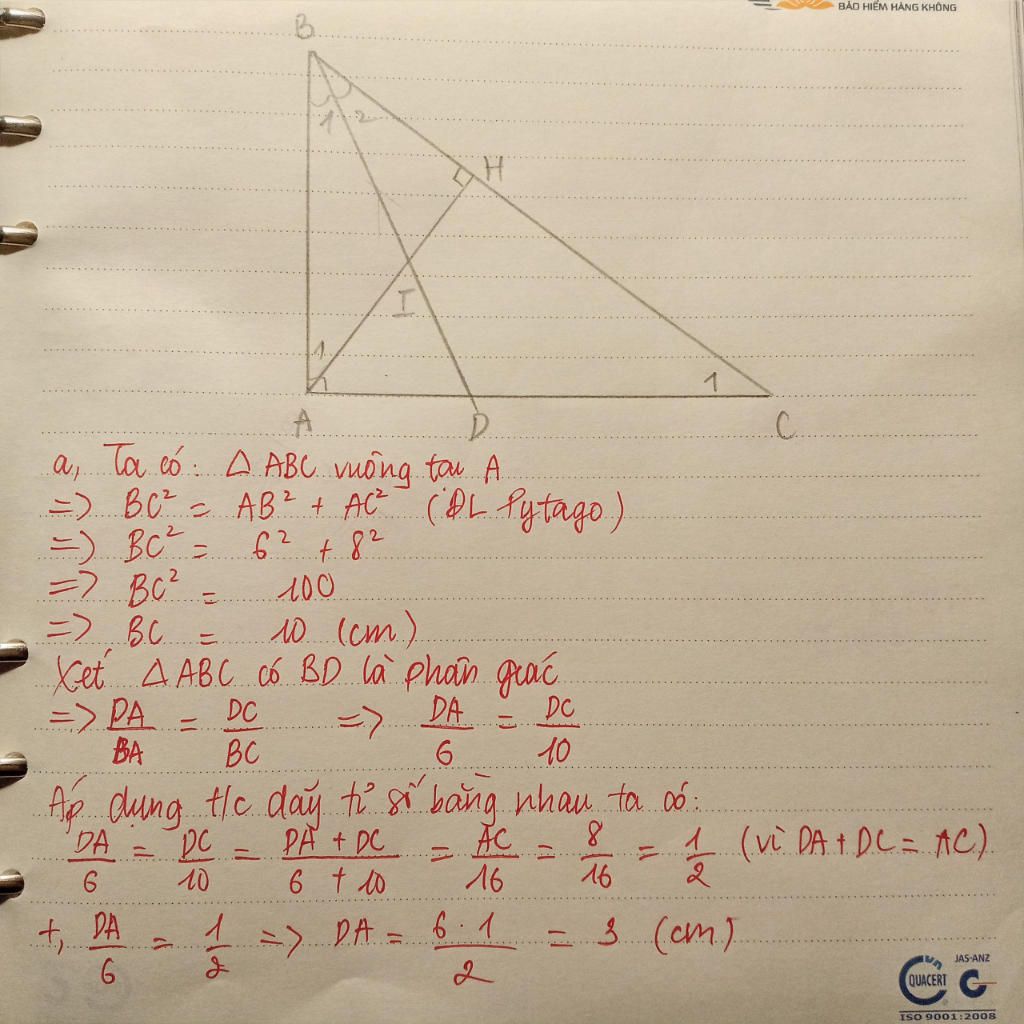 BẢO HIỂM HÀNG KHÔNG
B
1 2
H
I
1
1
A
D
C
a, Ta có: △ ABC vuông tại A
=> BC² = AB² + AC² (ĐL Pytago)
=> BC² = 6² + 8²
=> BC² = 100
=> BC = 10 (cm)
Xét △ ABC có BD là phân giác
=> DA/BA = DC/BC => DA/6 = DC/10
Áp dụng t/c dãy tỉ số bằng nhau ta có:
DA/6 = DC/10 = DA + DC/6 + 10 = AC/16 = 8/16 = 1/2 (vì DA + DC = AC)
+, DA/6 = 1/2 => DA = 6 · 1/2 = 3 (cm)
JAS-ANZ
QUACERT
ISO 9001:2008